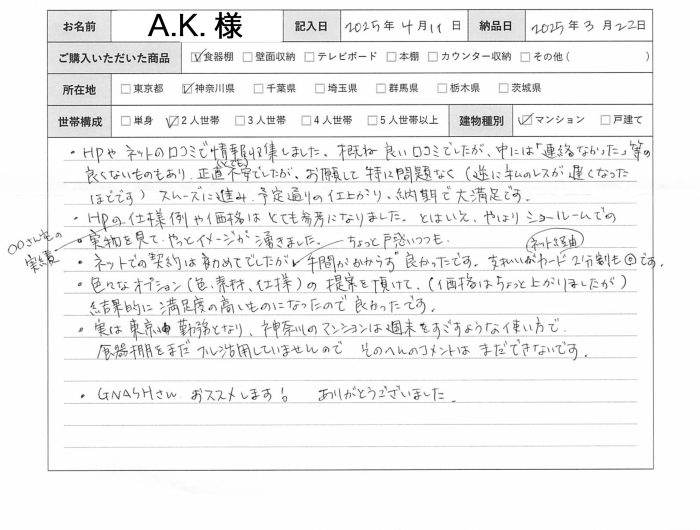 お名前 A.K. 様 記入日 2025年4月11日 納品日 2025年3月22日
ご購入いただいた商品 ☑食器棚 □壁面収納 □テレビボード □本棚 □カウンター収納 □その他( )
所在地 □東京都 ☑神奈川県 □千葉県 □埼玉県 □群馬県 □栃木県 □茨城県
世帯構成 □単身 ☑2人世帯 □3人世帯 □4人世帯 □5人世帯以上 建物種別 ☑マンション □戸建て
・HPやネットの口コミで情報収集しました。概ね良い口コミでしたが、中には「連絡なかった」等の
良くないものもあり、正直とても不安でしたが、お願して特に問題なく(逆に私のレスが遅くなった
ほどです)スムーズに進み、予定通りの仕上がり、納期で大満足です。
・HPの仕様例や価格はとても参考になりました。とはいえ、やはりショールームでの
○○さん宅の実績
・実物を見て、やっとイメージが湧きました。
・ネットでの契約は初めてでしたが、ちょっと戸惑いつつも、手間がかからず良かったです。支払いがカード2分割も◎です。
ネット経由
・色々なオプション(色、素材、仕様)の提案を頂けて、(価格はちょっと上がりましたが)
結果的に満足度の高いものになったので良かったです。
・実は東京勤務となり、神奈川のマンションは週末をすごすような使い方で、
食器棚をまだフル活用していませんので そのへんのコメントはまだできないです。
・GNASHさん おススメします! ありがとうございました。